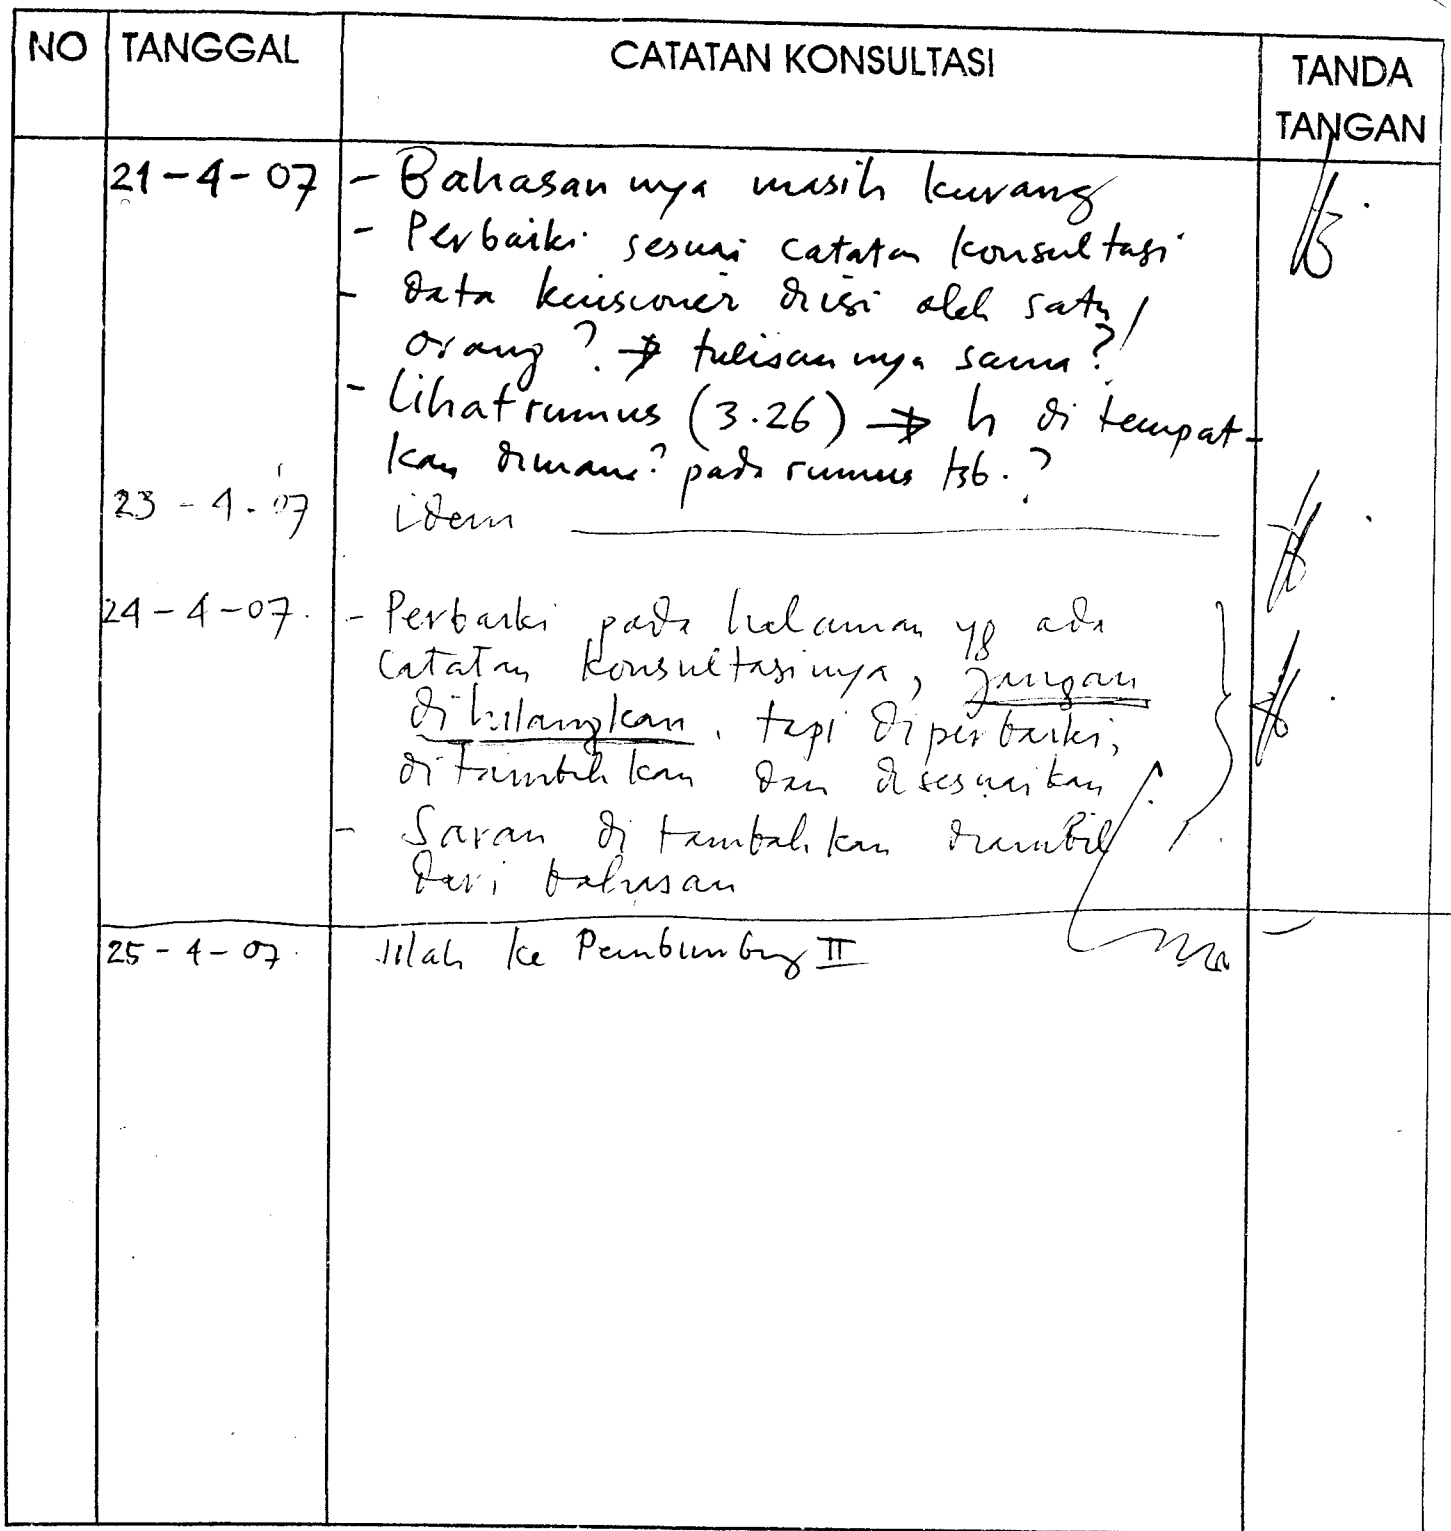 NO TANGGAL CATATAN KONSULTASI TANDA TANGAN
21-4-07 - Bahasannya masih kurang
- Perbaiki sesuai catatan konsultasi
- Data kuisioner diisi oleh satu
orang? → tulisannya sama?
- Lihat rumus (3.26) → h di tempat-
kan dimana? pada rumus tsb.?
23-4-07 idem
24-4-07. - Perbaiki pada halaman yg ada
catatan konsultasinya, jangan
dihilangkan, tapi diperbaiki,
ditambahkan dan disesuaikan
- Saran ditambahkan diambil
dari bahasan
25-4-07. ke Pembimbing II